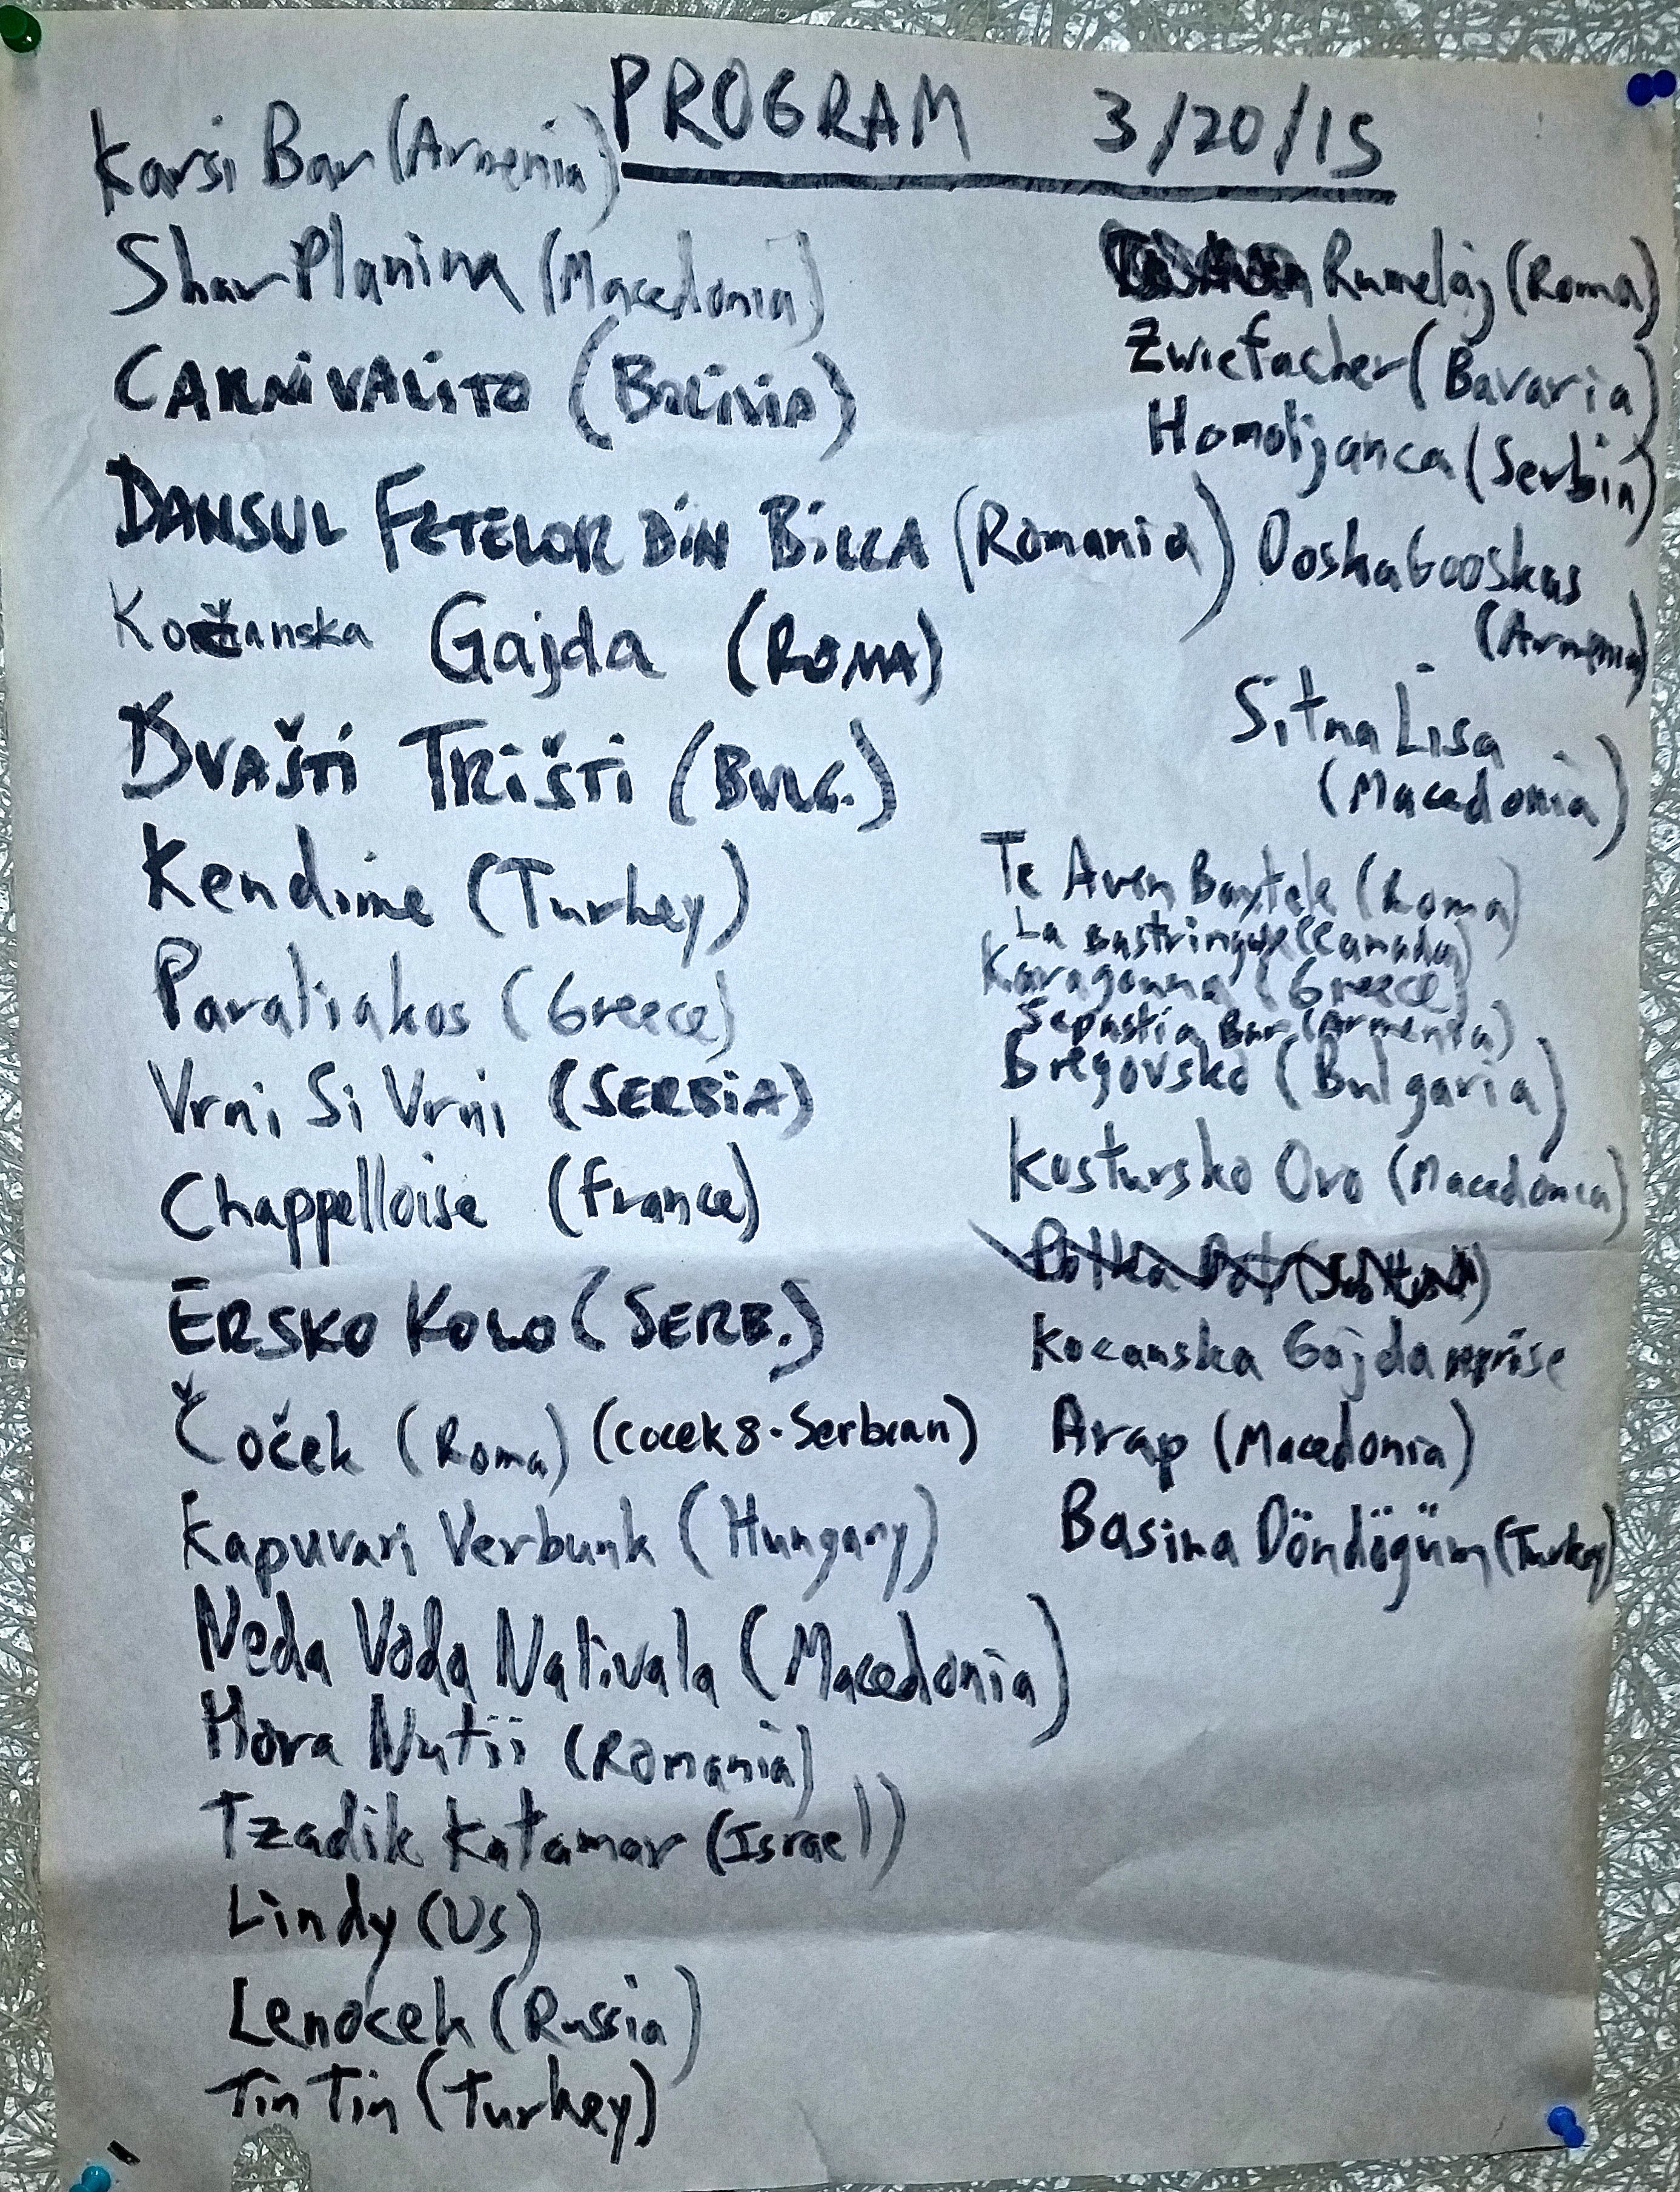 PROGRAM 3/20/15
Karsi Bar (Armenia)
Shar Planina (Macedonia)
CARNiVALiTO (BOLiViA)
DANSUL FETELOR DiN BiLCA (Romania)
Kočanska Gajda (ROMA)
DVAŠTi TRiŠTi (BULG.)
Kendime (Turkey)
Paraliakos (Greece)
Vrni Si Vrni (SERBiA)
Chappelloise (France)
ERSKO KOLO (SERB.)
Čoček (Roma) (Cocek 8 - Serbian)
Kapuvari Verbunk (Hungary)
Neda Voda Nalivala (Macedonia)
Hora Nutii (Romania)
Tzadik Katamar (Israel))
Lindy (US)
Lenocek (Russia)
Tin Tin (Turkey)
Rumelaj (Roma)
Zwiefacher (Bavaria)
Homolijanca (Serbia)
Ooska Gooskas
(Armenia)
Sitna Lisa
(Macedonia)
Te Aven Baxtale (Roma)
La Bastringue (Canada)
Karagouna (Greece)
Sepastia Bar (Armenia)
Bregovsko (Bulgaria)
Kostursko Oro (Macedonia)
Polka Dot
Kocanska Gajda reprise
Arap (Macedonia)
Basina Döndögüm (Turkey)